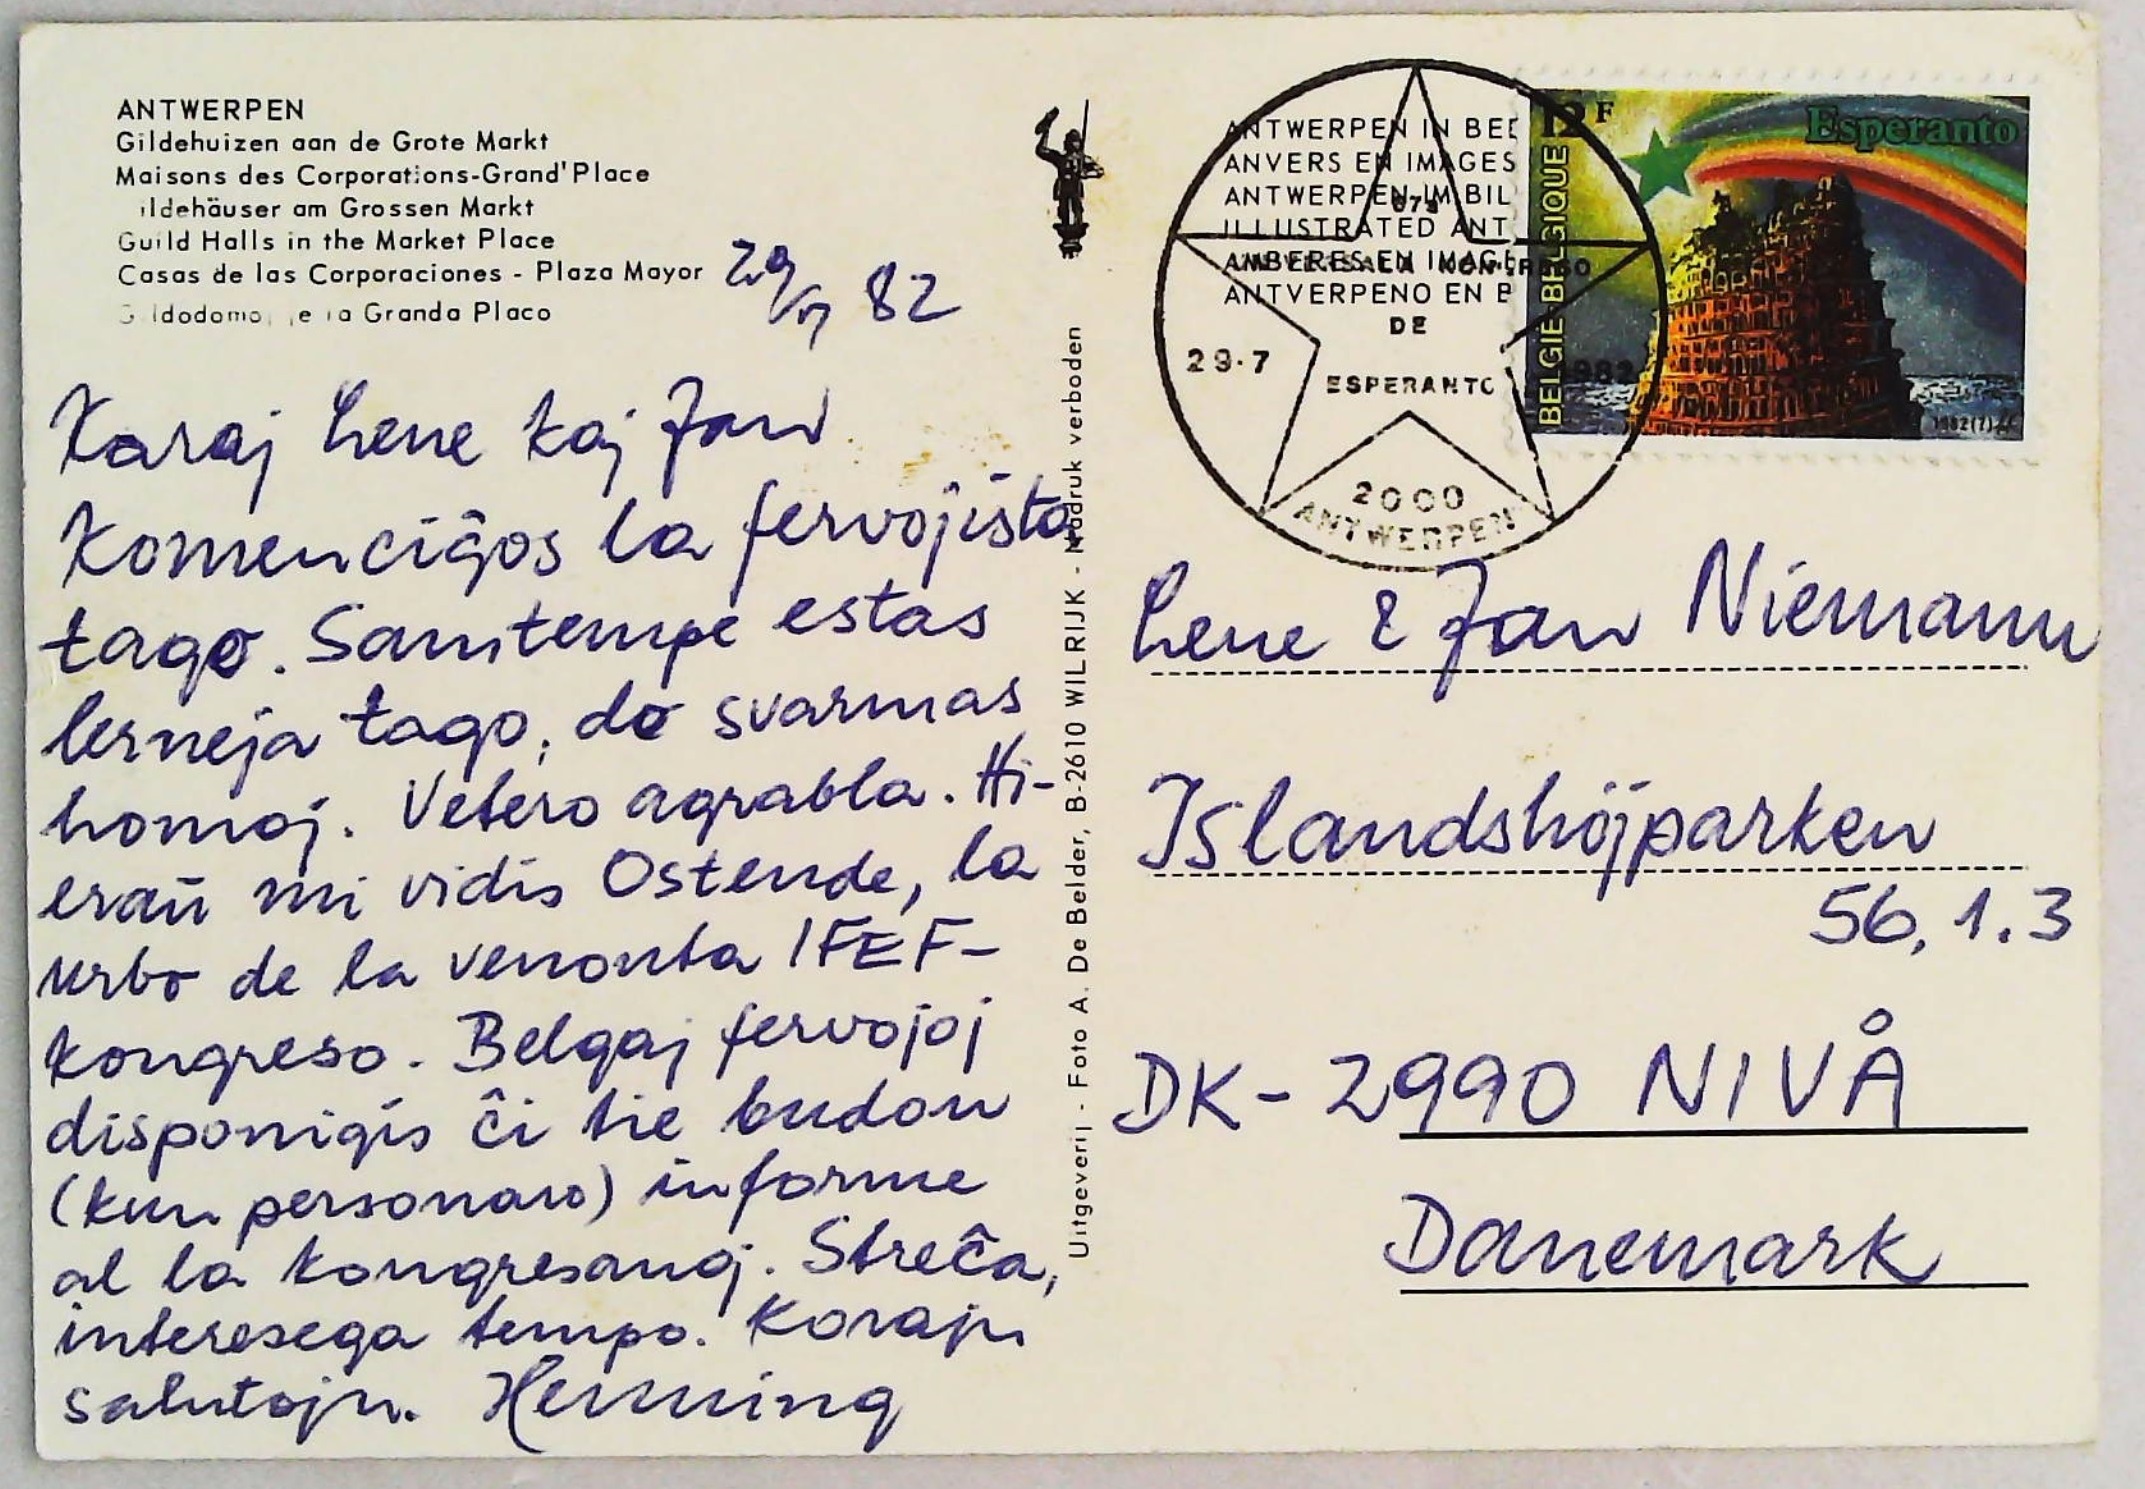 ANTWERPEN
Gildehuizen aan de Grote Markt
Maisons des Corporations-Grand'Place
ildehäuser am Grossen Markt
Guild Halls in the Market Place
Casas de las Corporaciones - Plaza Mayor
Granda Placo
29/7 82
Karaj Lene kaj Jan
Komenciĝos la fervojista
tago. Samtempe estas
lerneja tago, do svarmas
homoj. Vetero agrabla. Hi-
eraŭ mi vidis Ostende, la
urbo de la venonta IFEF-
kongreso. Belgaj fervojoj
disponigis ĉi tie budon
(kun personaro) informe
al la kongresanoj. Streĉa,
interesega tempo. Korajn
salutojn. Henning
Uitgeverij - Foto A. De Belder, B-2610 WILRIJK - Nadruk verboden
ANTWERPEN IN BEE
ANVERS EN IMAGES
ANTWERPEN IM BIL
ILLUSTRATED ANT
AMBERES EN IMAGE
ANTVERPENO EN B
67a
KONGRESO
DE
ESPERANTO
29·7 1982
2000
ANTWERPEN
12 F
Esperanto
BELGIE-BELGIQUE
Lene & Jan Niemann
Islandshöjparken
56, 1.3
DK-2990 NIVÅ
Danemark